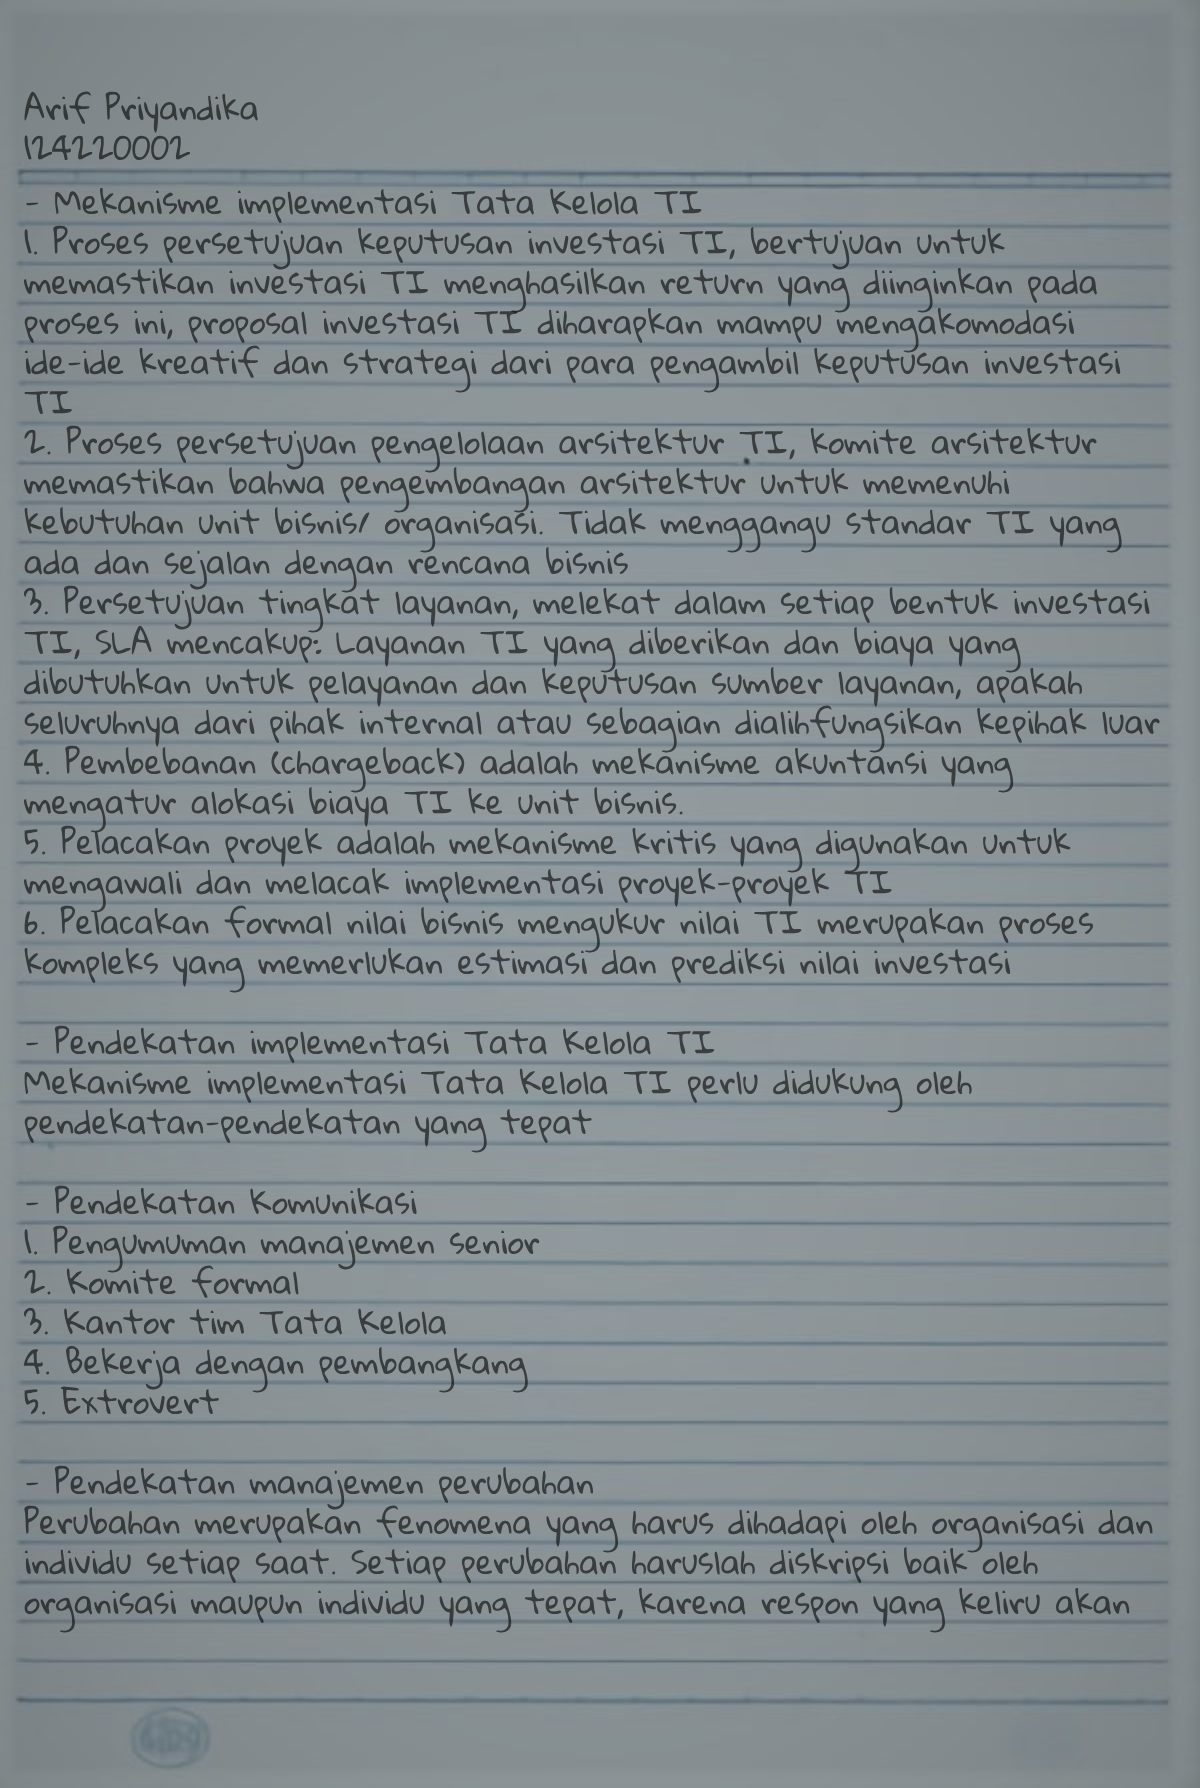 Arif Priyandika
124220002
- Mekanisme implementasi Tata Kelola TI
1. Proses persetujuan keputusan investasi TI, bertujuan untuk
memastikan investasi TI menghasilkan return yang diinginkan pada
proses ini, proposal investasi TI diharapkan mampu mengakomodasi
ide-ide kreatif dan strategi dari para pengambil keputusan investasi
TI
2. Proses persetujuan pengelolaan arsitektur TI, komite arsitektur
memastikan bahwa pengembangan arsitektur untuk memenuhi
kebutuhan unit bisnis/ organisasi. Tidak menggangu standar TI yang
ada dan sejalan dengan rencana bisnis
3. Persetujuan tingkat layanan, melekat dalam setiap bentuk investasi
TI, SLA mencakup: Layanan TI yang diberikan dan biaya yang
dibutuhkan untuk pelayanan dan keputusan sumber layanan, apakah
seluruhnya dari pihak internal atau sebagian dialihfungsikan kepihak luar
4. Pembebanan (chargeback) adalah mekanisme akuntansi yang
mengatur alokasi biaya TI ke unit bisnis.
5. Pelacakan proyek adalah mekanisme kritis yang digunakan untuk
mengawali dan melacak implementasi proyek-proyek TI
6. Pelacakan formal nilai bisnis mengukur nilai TI merupakan proses
kompleks yang memerlukan estimasi dan prediksi nilai investasi
- Pendekatan implementasi Tata Kelola TI
Mekanisme implementasi Tata Kelola TI perlu didukung oleh
pendekatan-pendekatan yang tepat
- Pendekatan Komunikasi
1. Pengumuman manajemen senior
2. Komite formal
3. Kantor tim Tata Kelola
4. Bekerja dengan pembangkang
5. Extrovert
- Pendekatan manajemen perubahan
Perubahan merupakan fenomena yang harus dihadapi oleh organisasi dan
individu setiap saat. Setiap perubahan haruslah diskripsi baik oleh
organisasi maupun individu yang tepat, karena respon yang keliru akan